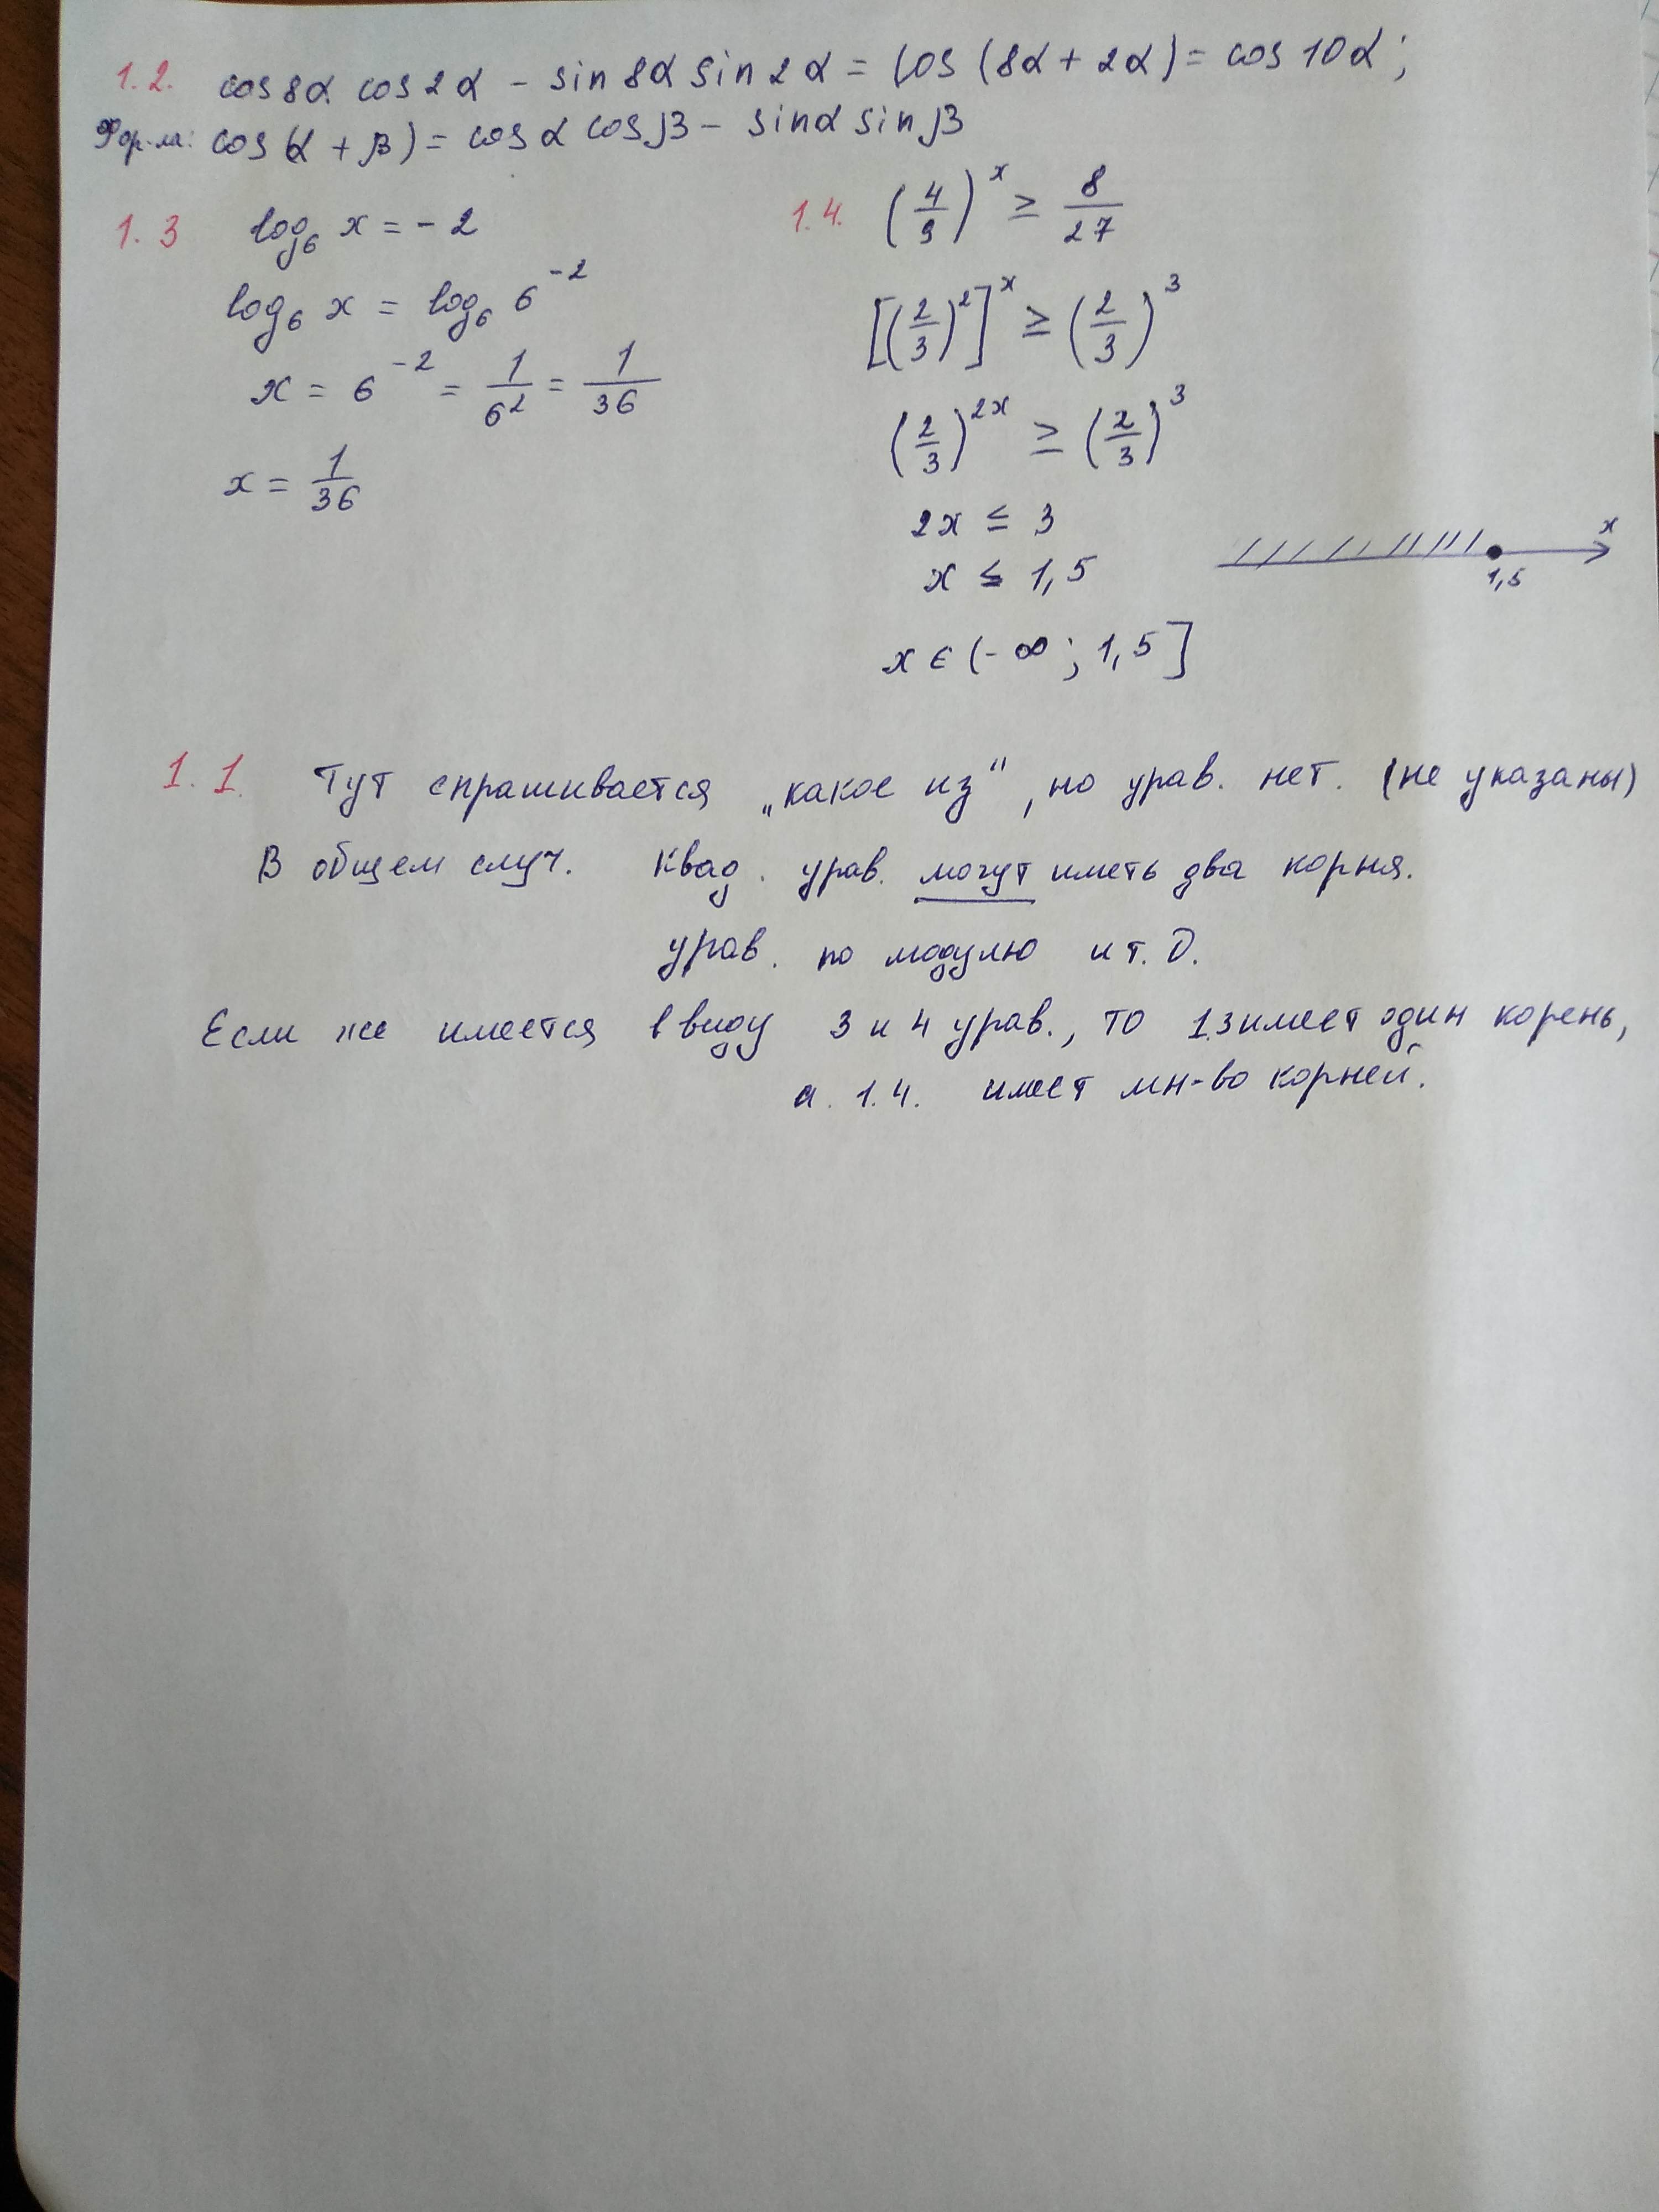 1.2. cos 8α cos 2α - sin 8α sin 2α = cos (8α + 2α) = cos 10α ;
Фор-ла: cos(α + β) = cos α cos β - sin α sin β
1.3 log₆ x = - 2
log₆ x = log₆ 6⁻²
x = 6⁻² = 1/6² = 1/36
x = 1/36
1.4. (4/9)ˣ ≥ 8/27
[(2/3)²]ˣ ≥ (2/3)³
(2/3)²ˣ ≥ (2/3)³
2x ≤ 3
x ≤ 1,5
x
1,5
x ∈ (- ∞ ; 1,5]
1.1. Тут спрашивается „какое из“, но урав. нет. (не указаны)
В общем случ. Квад. урав. могут иметь два корня.
урав. по модулю и т. д.
Если же имеется ввиду 3 и 4 урав., то 1.3 имеет один корень,
а. 1.4. имеет мн-во корней.